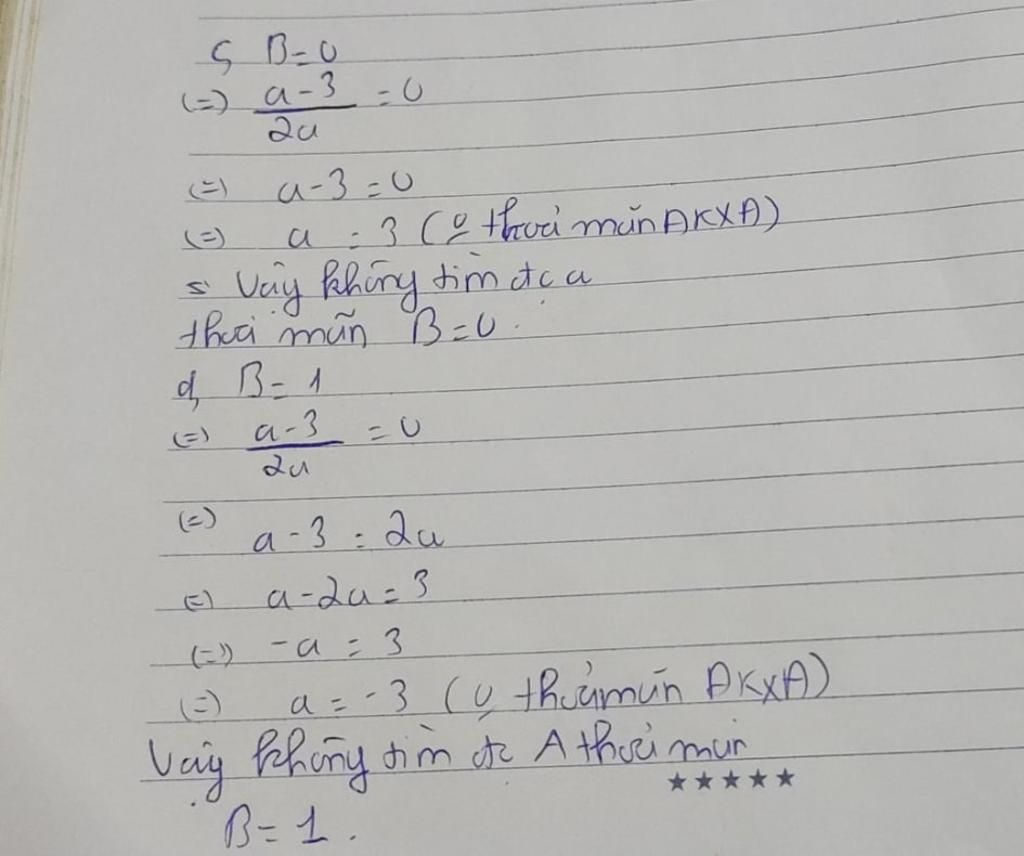 c, B=0
(=) a-3/2a =0
(=) a-3=0
(=) a = 3 (o thoả mãn ĐKXĐ)
Vậy không tìm đc a
thoả mãn B=0.
d, B=1
(=) a-3/2a =0
(=) a-3 = 2a
(=) a-2a=3
(=) -a = 3
(=) a=-3 (o thoả mãn ĐKXĐ)
Vậy không tìm đc A thoả mãn
★★★★★
B=1.